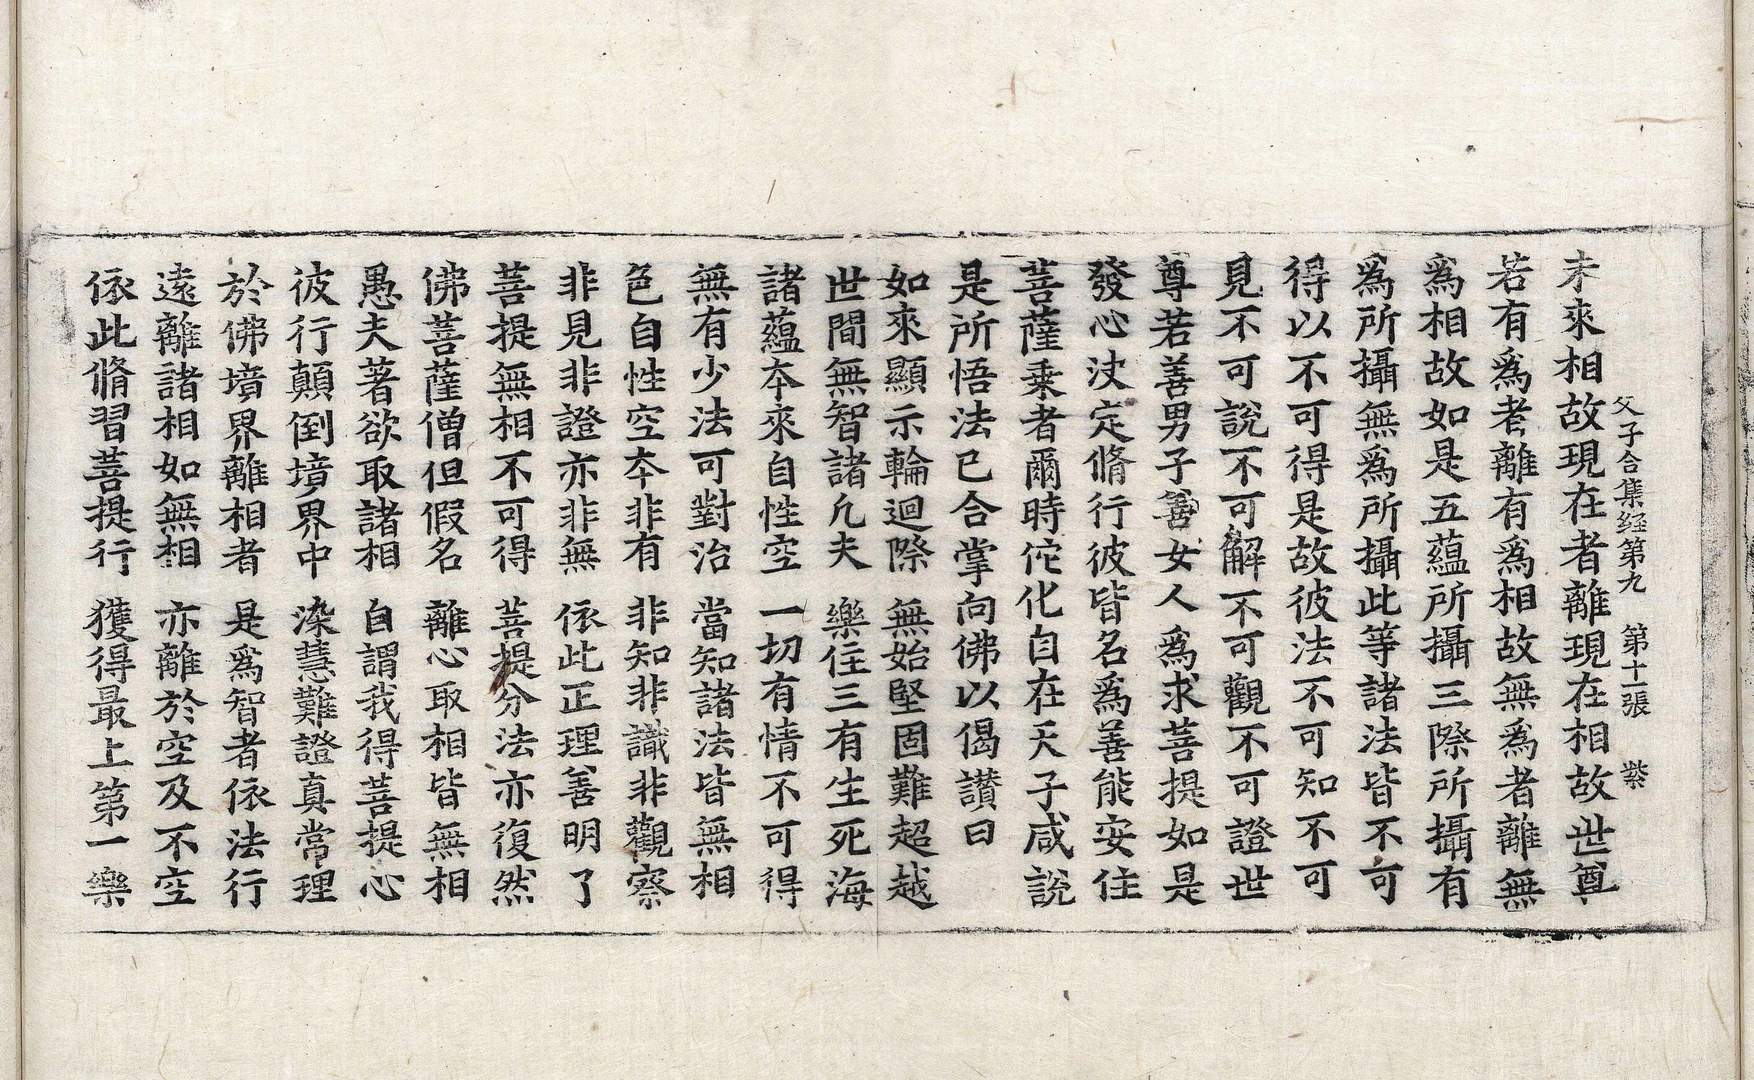 父子合集経第九　第十一張　紫
未來相故現在者離現在相故世尊
若有爲者離有爲相故無爲者離無
爲相故如是五蘊所攝三際所攝有
爲所攝無爲所攝此等諸法皆不可
得以不可得是故彼法不可知不可
見不可說不可解不可觀不可證世
尊若善男子善女人爲求菩提如是
發心決定脩行彼皆名爲善能安住
菩薩乗者爾時佗化自在天子咸說
是所悟法已合掌向佛以偈讃曰
如來顯示輪迴際　無始堅固難超越
世間無智諸凢夫　樂住三有生死海
諸蘊夲來自性空　一切有情不可得
無有少法可對治　當知諸法皆無相
色自性空夲非有　非知非識非觀察
非見非證亦非無　依此正理善明了
菩提無相不可得　菩提分法亦復然
佛菩薩僧但假名　離心取相皆無相
愚夫著欲取諸相　自謂我得菩提心
彼行顛倒境界中　染慧難證真常理
於佛境界離相者　是爲智者依法行
遠離諸相如無相　亦離於空及不空
依此脩習菩提行　獲得最上第一樂